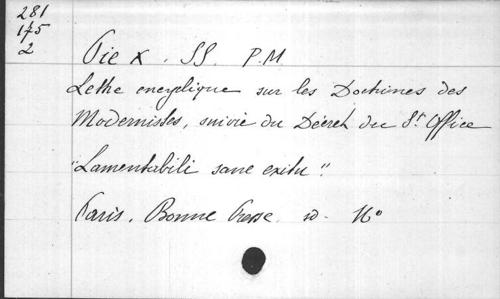 281
175
2
Pie X. SS. P.M.
Lettre encyclique sur les Doctrines des
Modernistes, suivie du Décret du St Office
"Lamentabili sane exitu".
Paris, Bonne Presse.